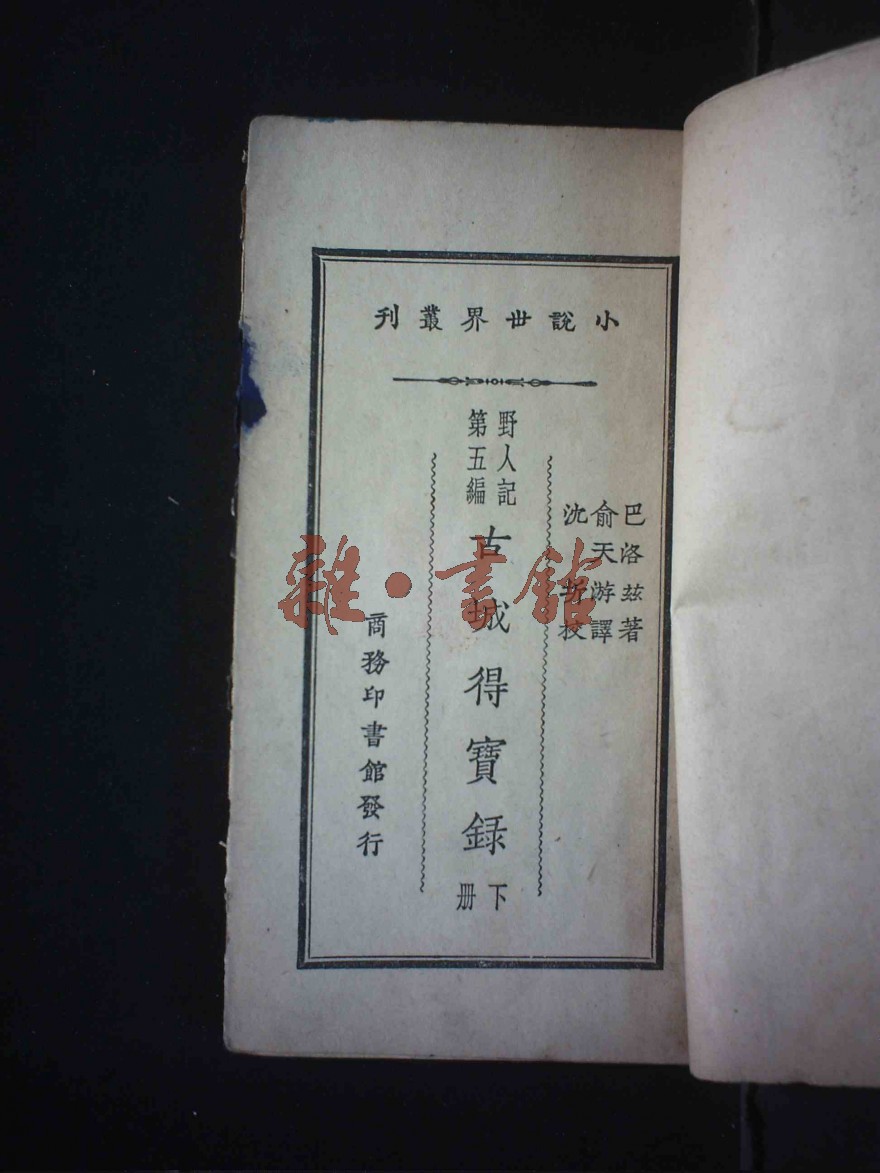 小說世界叢刊
巴洛兹著
俞天游譯
沈㪽校
野人記
第五編
古城得寶録
下册
商務印書館發行
雜·書館